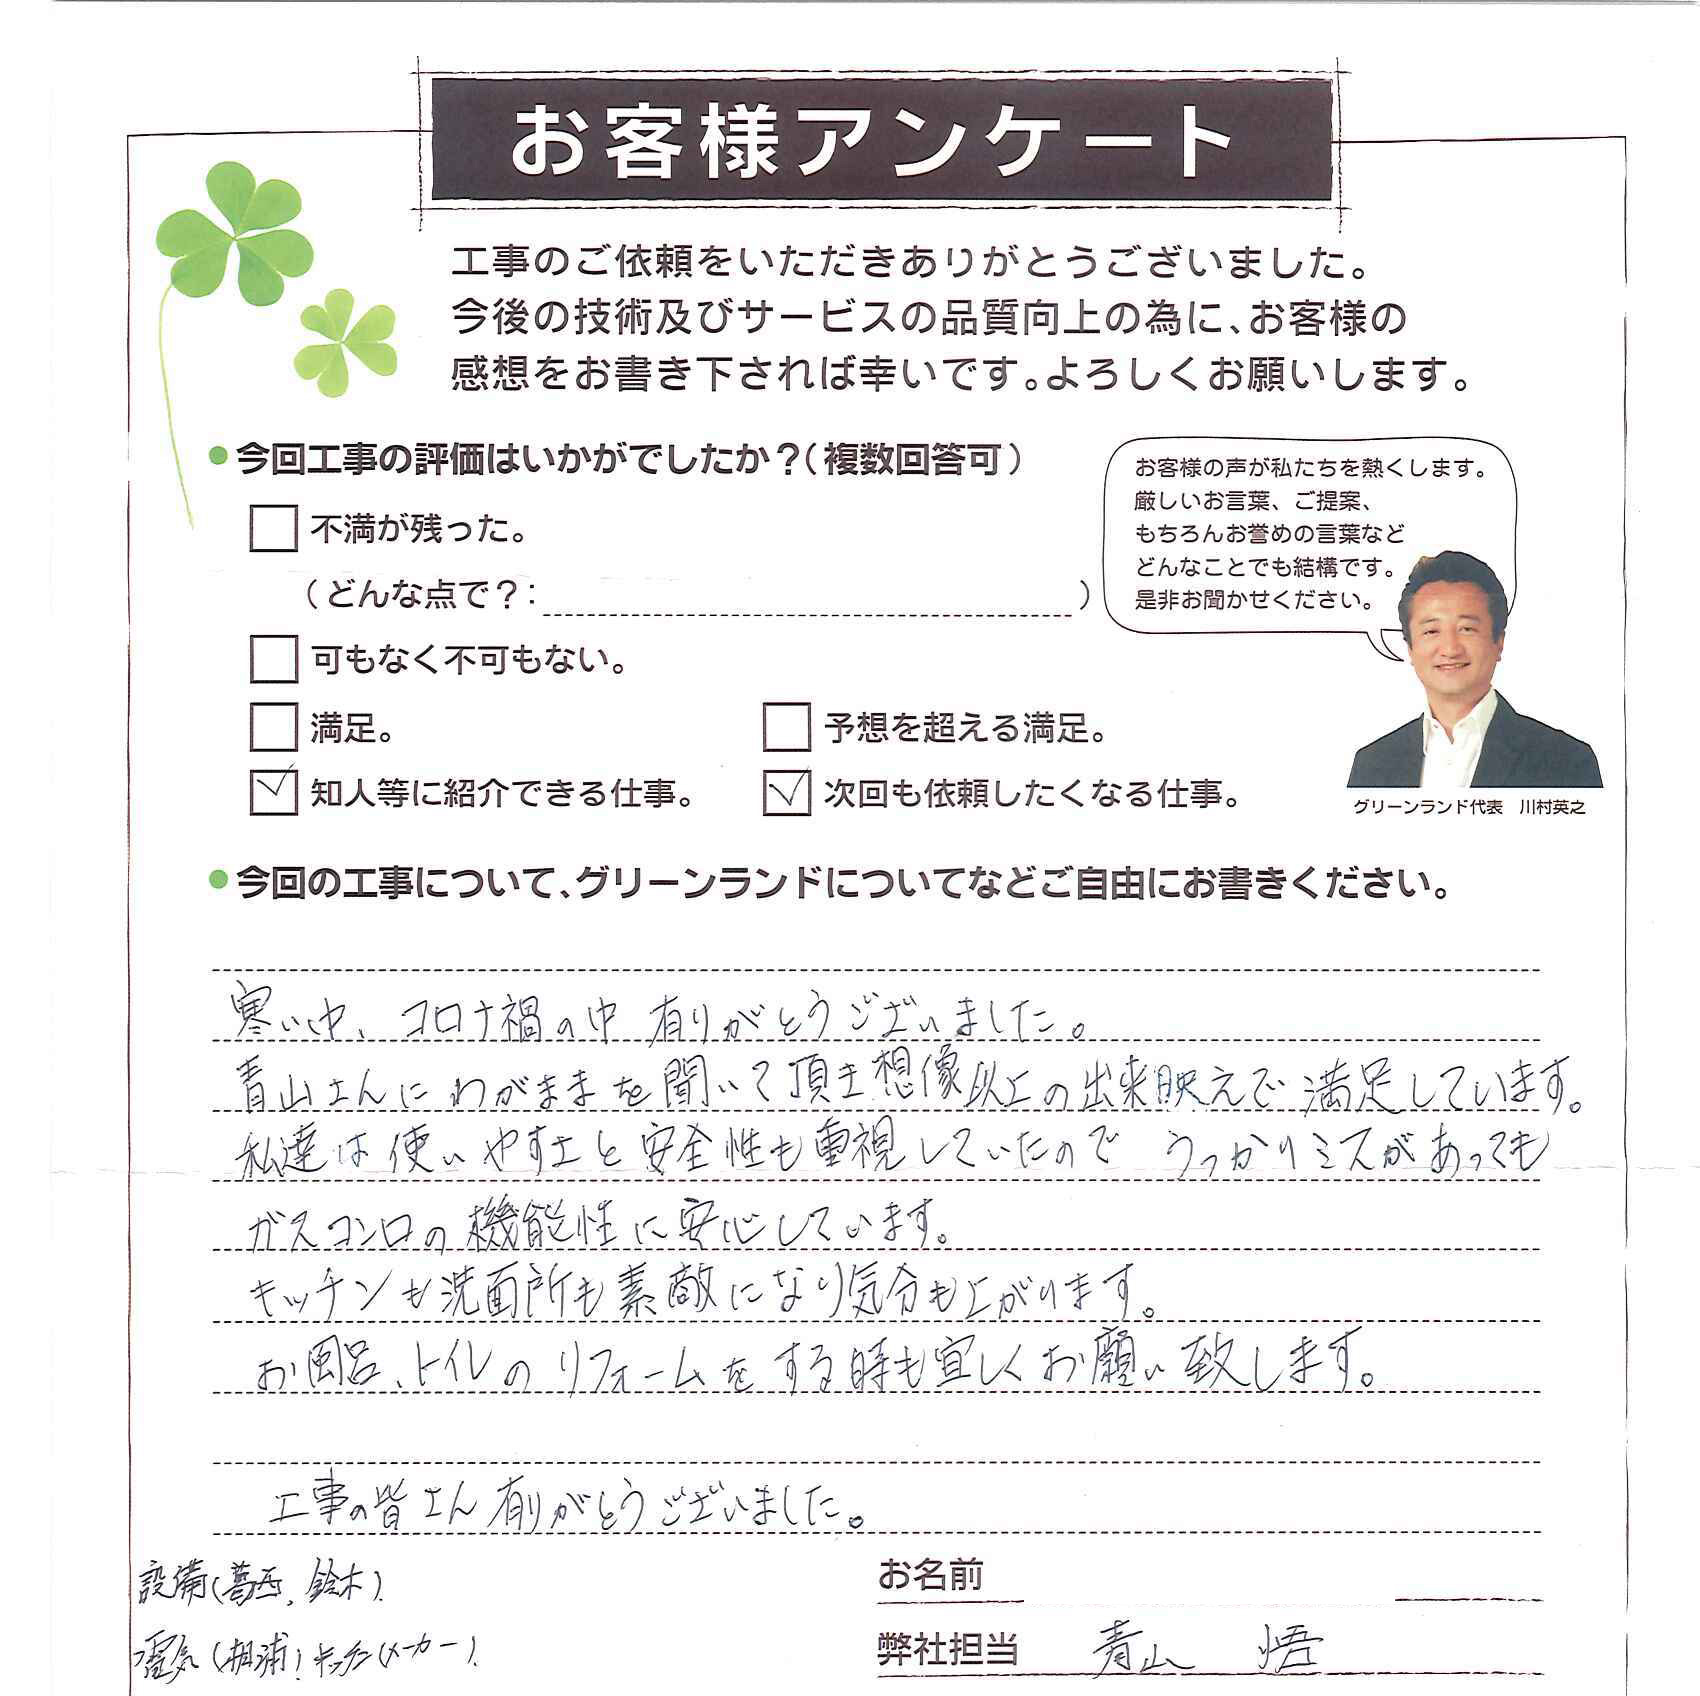 お客様アンケート
工事のご依頼をいただきありがとうございました。
今後の技術及びサービスの品質向上の為に、お客様の
感想をお書き下されば幸いです。よろしくお願いします。
今回工事の評価はいかがでしたか？（複数回答可）
不満が残った。
（どんな点で？：　）
可もなく不可もない。
満足。
予想を超える満足。
知人等に紹介できる仕事。
次回も依頼したくなる仕事。
お客様の声が私たちを熱くします。
厳しいお言葉、ご提案、
もちろんお誉めの言葉など
どんなことでも結構です。
是非お聞かせください。
グリーンランド代表　川村英之
今回の工事について、グリーンランドについてなどご自由にお書きください。
寒い中、コロナ禍の中 有りがとうございました。
青山さんにわがままを聞いて頂き想像以上の出来映えで満足しています。
私達は使いやすさと安全性も重視していたので うっかりミスがあっても
ガスコンロの機能性に安心しています。
キッチンも洗面所も素敵になり気分も上がります。
お風呂、トイレのリフォームをする時も宜しくお願い致します。
工事の皆さん有りがとうございました。
設備(葛西、鈴木)
電気 キッチン(メーカー)
お名前
弊社担当 青山 悟